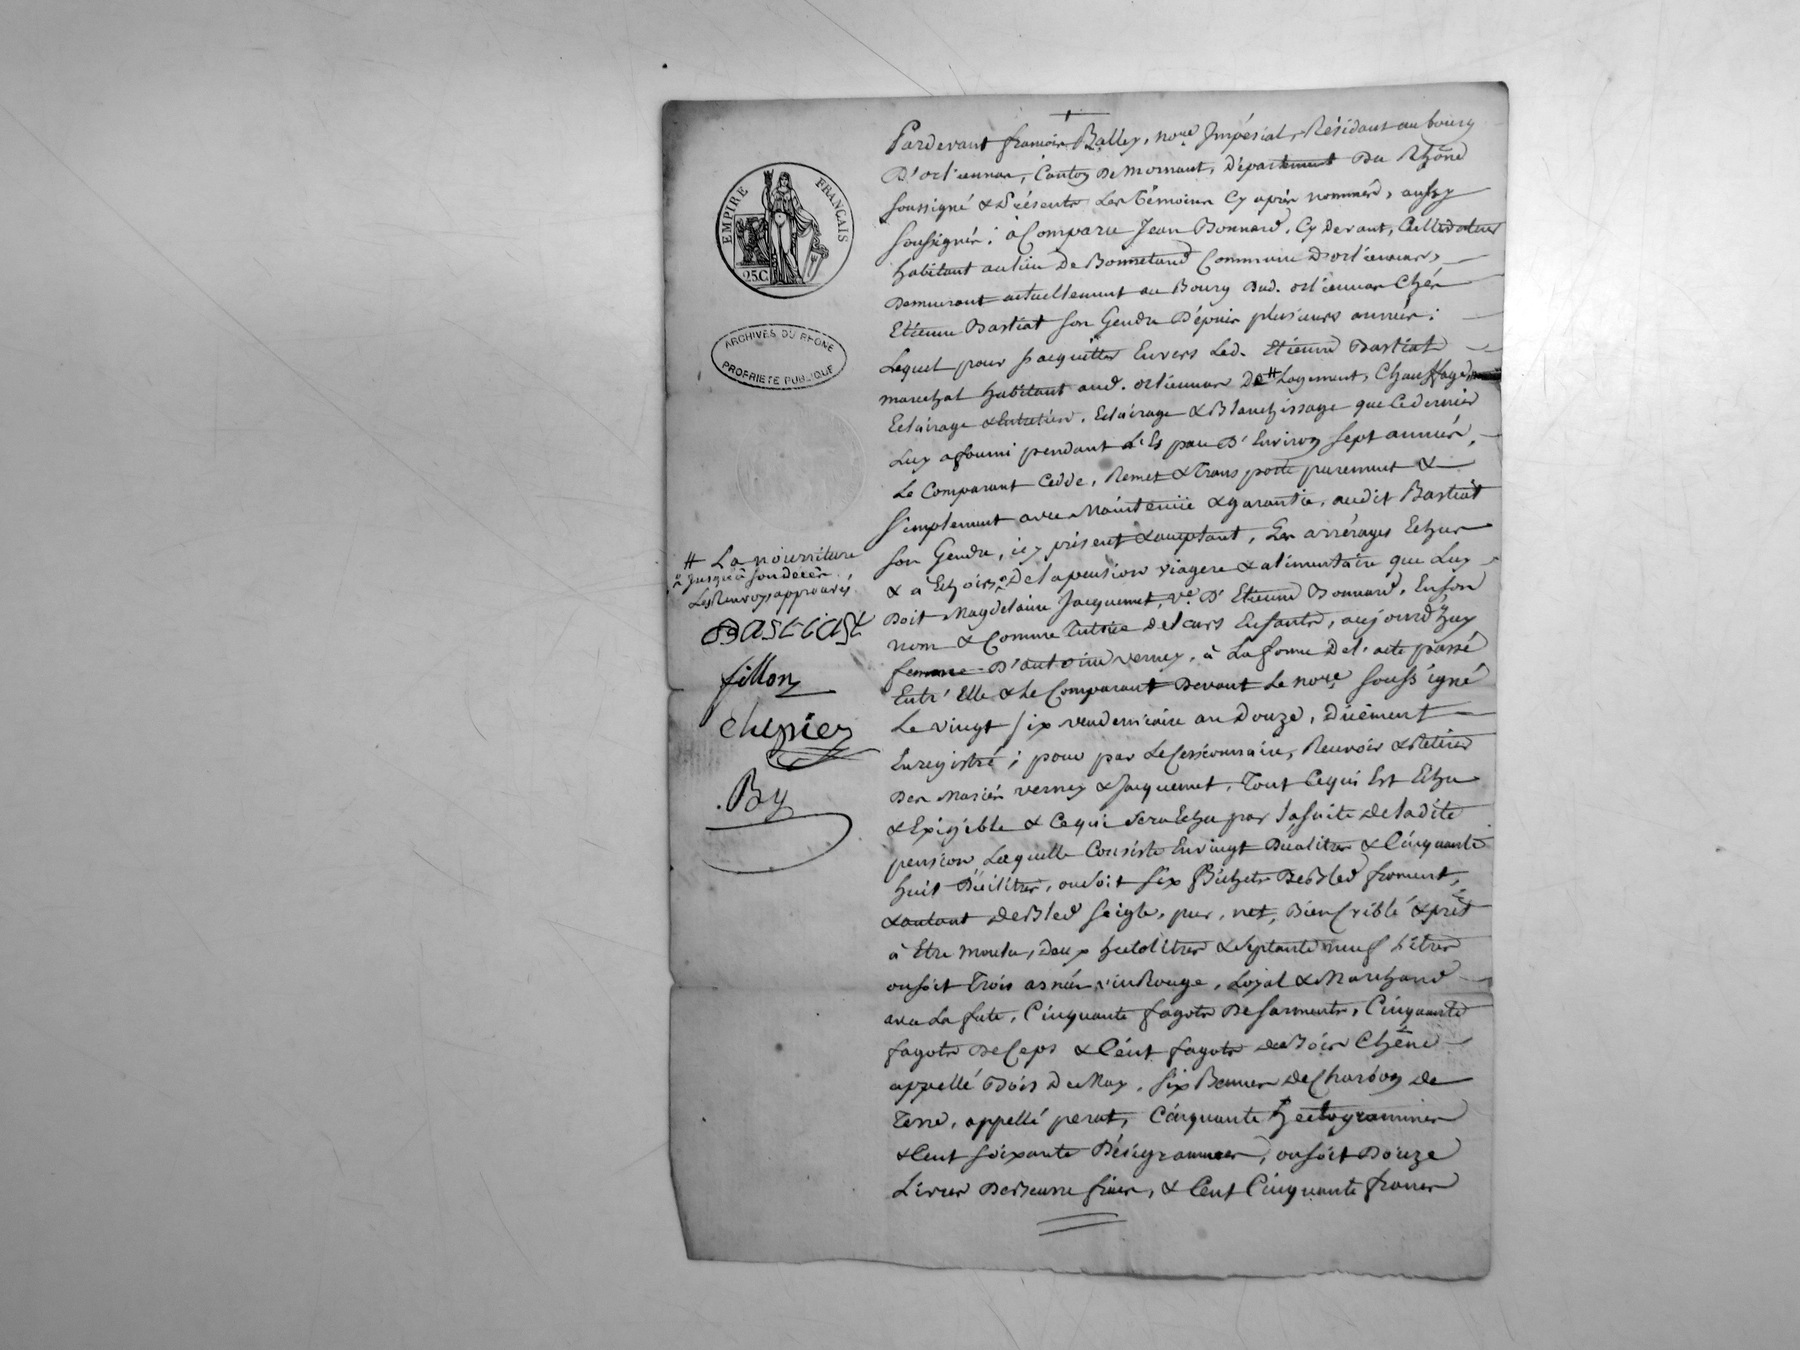 Pardevant françois Balley, no.re Impérial, Résidant au bourg
D'orliennas, Canton De Mornant, Département Du Rhône
soussigné & Présents Les Témoins Cy après nommés, aussy
soussignés ; à Comparu Jean Bonnard, Cy devant, Cultivateur
habitant au lieu De Bonnetand Commune D'orliennas,
Demeurant actuellement au Bourg Dud. orliennas Chés
Etienne Bastiat son Gendre Dépuis plusieurs années :
Lequel pour s'acquitter Envers Led. Etienne Bastiat
marechal habitant aud. orliennas De # Logement, Chauffage
Eclairage & Entretien, Eclairage & Blanchissage que Ce dernier
Luy a fourni pendant L'Espace D'Environ sept années,
Le Comparant Cedde, Remet & Transporte purement &
simplement avec Maintenüe & garantie, audit Bastiat
son Gendre, icy présent & acceptant, Les arrérages Echus
& à Echoir De la pension viagere & alimentaire que Luy
Doit Magdelaine Jacquemet, v.e D'Etienne Bonnard, En son
nom & Comme Tutrice De Leurs Enfants, aujourd'huy
femme D'antoine verney, à La forme De l'acte passé
Entr'Elle & Le Comparant Devant Le no.re soussigné
Le vingt six vendemiaire an Douze, Düement
Enregistré ; pour par Le Cessionnaire, Recevoir & Retirer
Des Mariés verney & Jacquemet, Tout Ce qui Est Echu
& Exigible & Ce qui sera Echu par la suite de la dite
pension Laquelle Consiste En vingt Décalitres & Cinquante
huit Décilitres, ou soit six Bichets De Bled froment,
& autant de Bled seigle, pur, net, Bien Criblé & prêt
à Etre moulu, deux hectolitres & septante neuf Litres
ou soit Trois asnées vin Rouge, Loyal & Marchand
avec La fute, Cinquante fagots De sarments, Cinquante
fagots De Ceps & Cent fagots de Bois Chêne
appellé Bois De May, six Bennes De Charbon De
Terre, appellé perat, Cinquante hectogrammes
& Cent soixante Décigrammes, ou soit Douze
Livres De Beurre frais, & Cent Cinquante francs
EMPIRE FRANÇAIS
25.C
ARCHIVES DU RHÔNE
PROPRIÉTÉ PUBLIQUE
# La nourriture
jusqu'à son décès
Les Renvoys approuvés
BASTIAT
fillon
chesnier
By